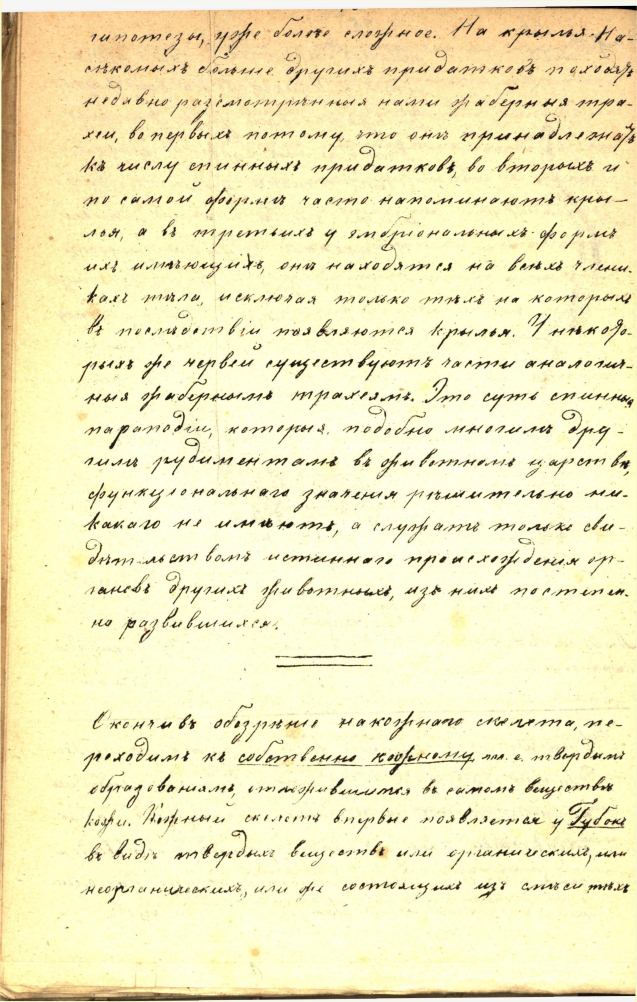 гипотезы, уже более сложное. На крылья На-
сѣкомыхъ больше другихъ придатковъ походятъ
недавно разсмотрѣнныя нами жаберныя тра-
хеи, во первыхъ потому, что онѣ принадлежатъ
къ числу спинныхъ придатковъ, во вторыхъ и
по самой формѣ часто напоминаютъ кры-
лья, а въ третьихъ у эмбріональныхъ формъ
ихъ имѣющихъ, онѣ находятся на всѣхъ члени-
кахъ тѣла, исключая только тѣхъ на которыхъ
въ послѣдствіи появляются крылья. У нѣкото-
рыхъ же червей существуютъ части аналогич-
ныя жабернымъ трахеямъ. Это суть спинныя
параподіи, которыя подобно многимъ дру-
гимъ рудиментамъ въ животномъ царствѣ,
функціональнаго значенія рѣшительно ни-
какаго не имѣютъ, а служатъ только сви-
дѣтельствомъ истиннаго происхожденія ор-
гановъ другихъ животныхъ, изъ нихъ постепен-
но развившихся.
Окончивъ обозрѣніе накожнаго скелета, пе-
реходимъ къ собственно кожному, т. е. твердымъ
образованіямъ, отложившимся въ самомъ веществѣ
кожи. Кожный скелетъ впервые появляется у Губокъ
въ видѣ твердыхъ веществъ или органическихъ, или
неорганическихъ, или же состоящихъ изъ смѣси тѣхъ